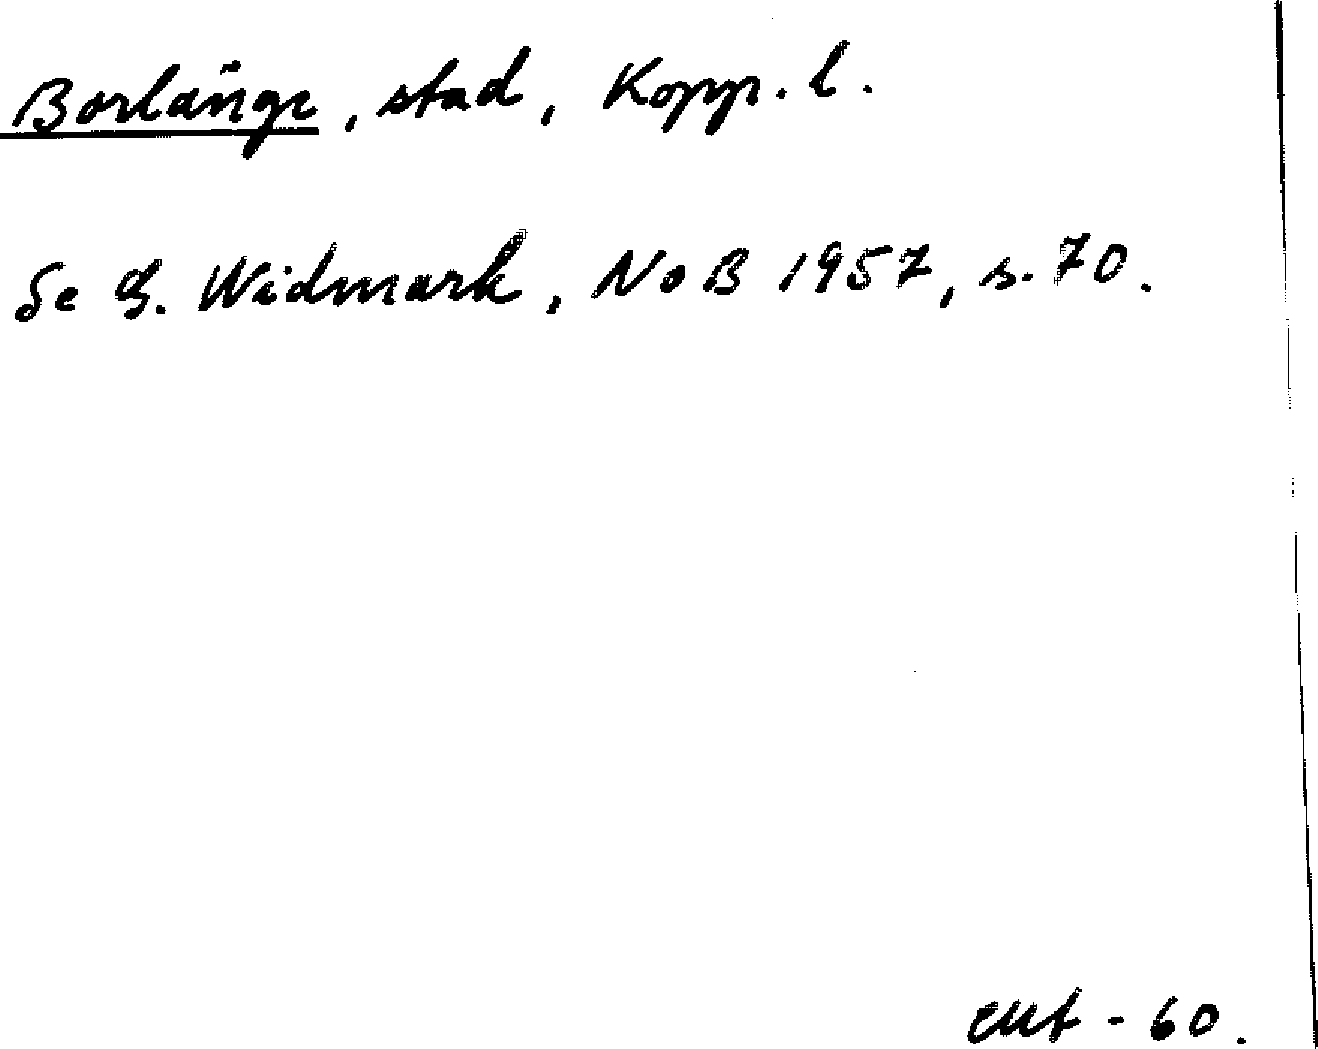 Borlänge, stad, Kopp. l.
Se G. Widmark, NoB 1957, s. 70.
- 60.